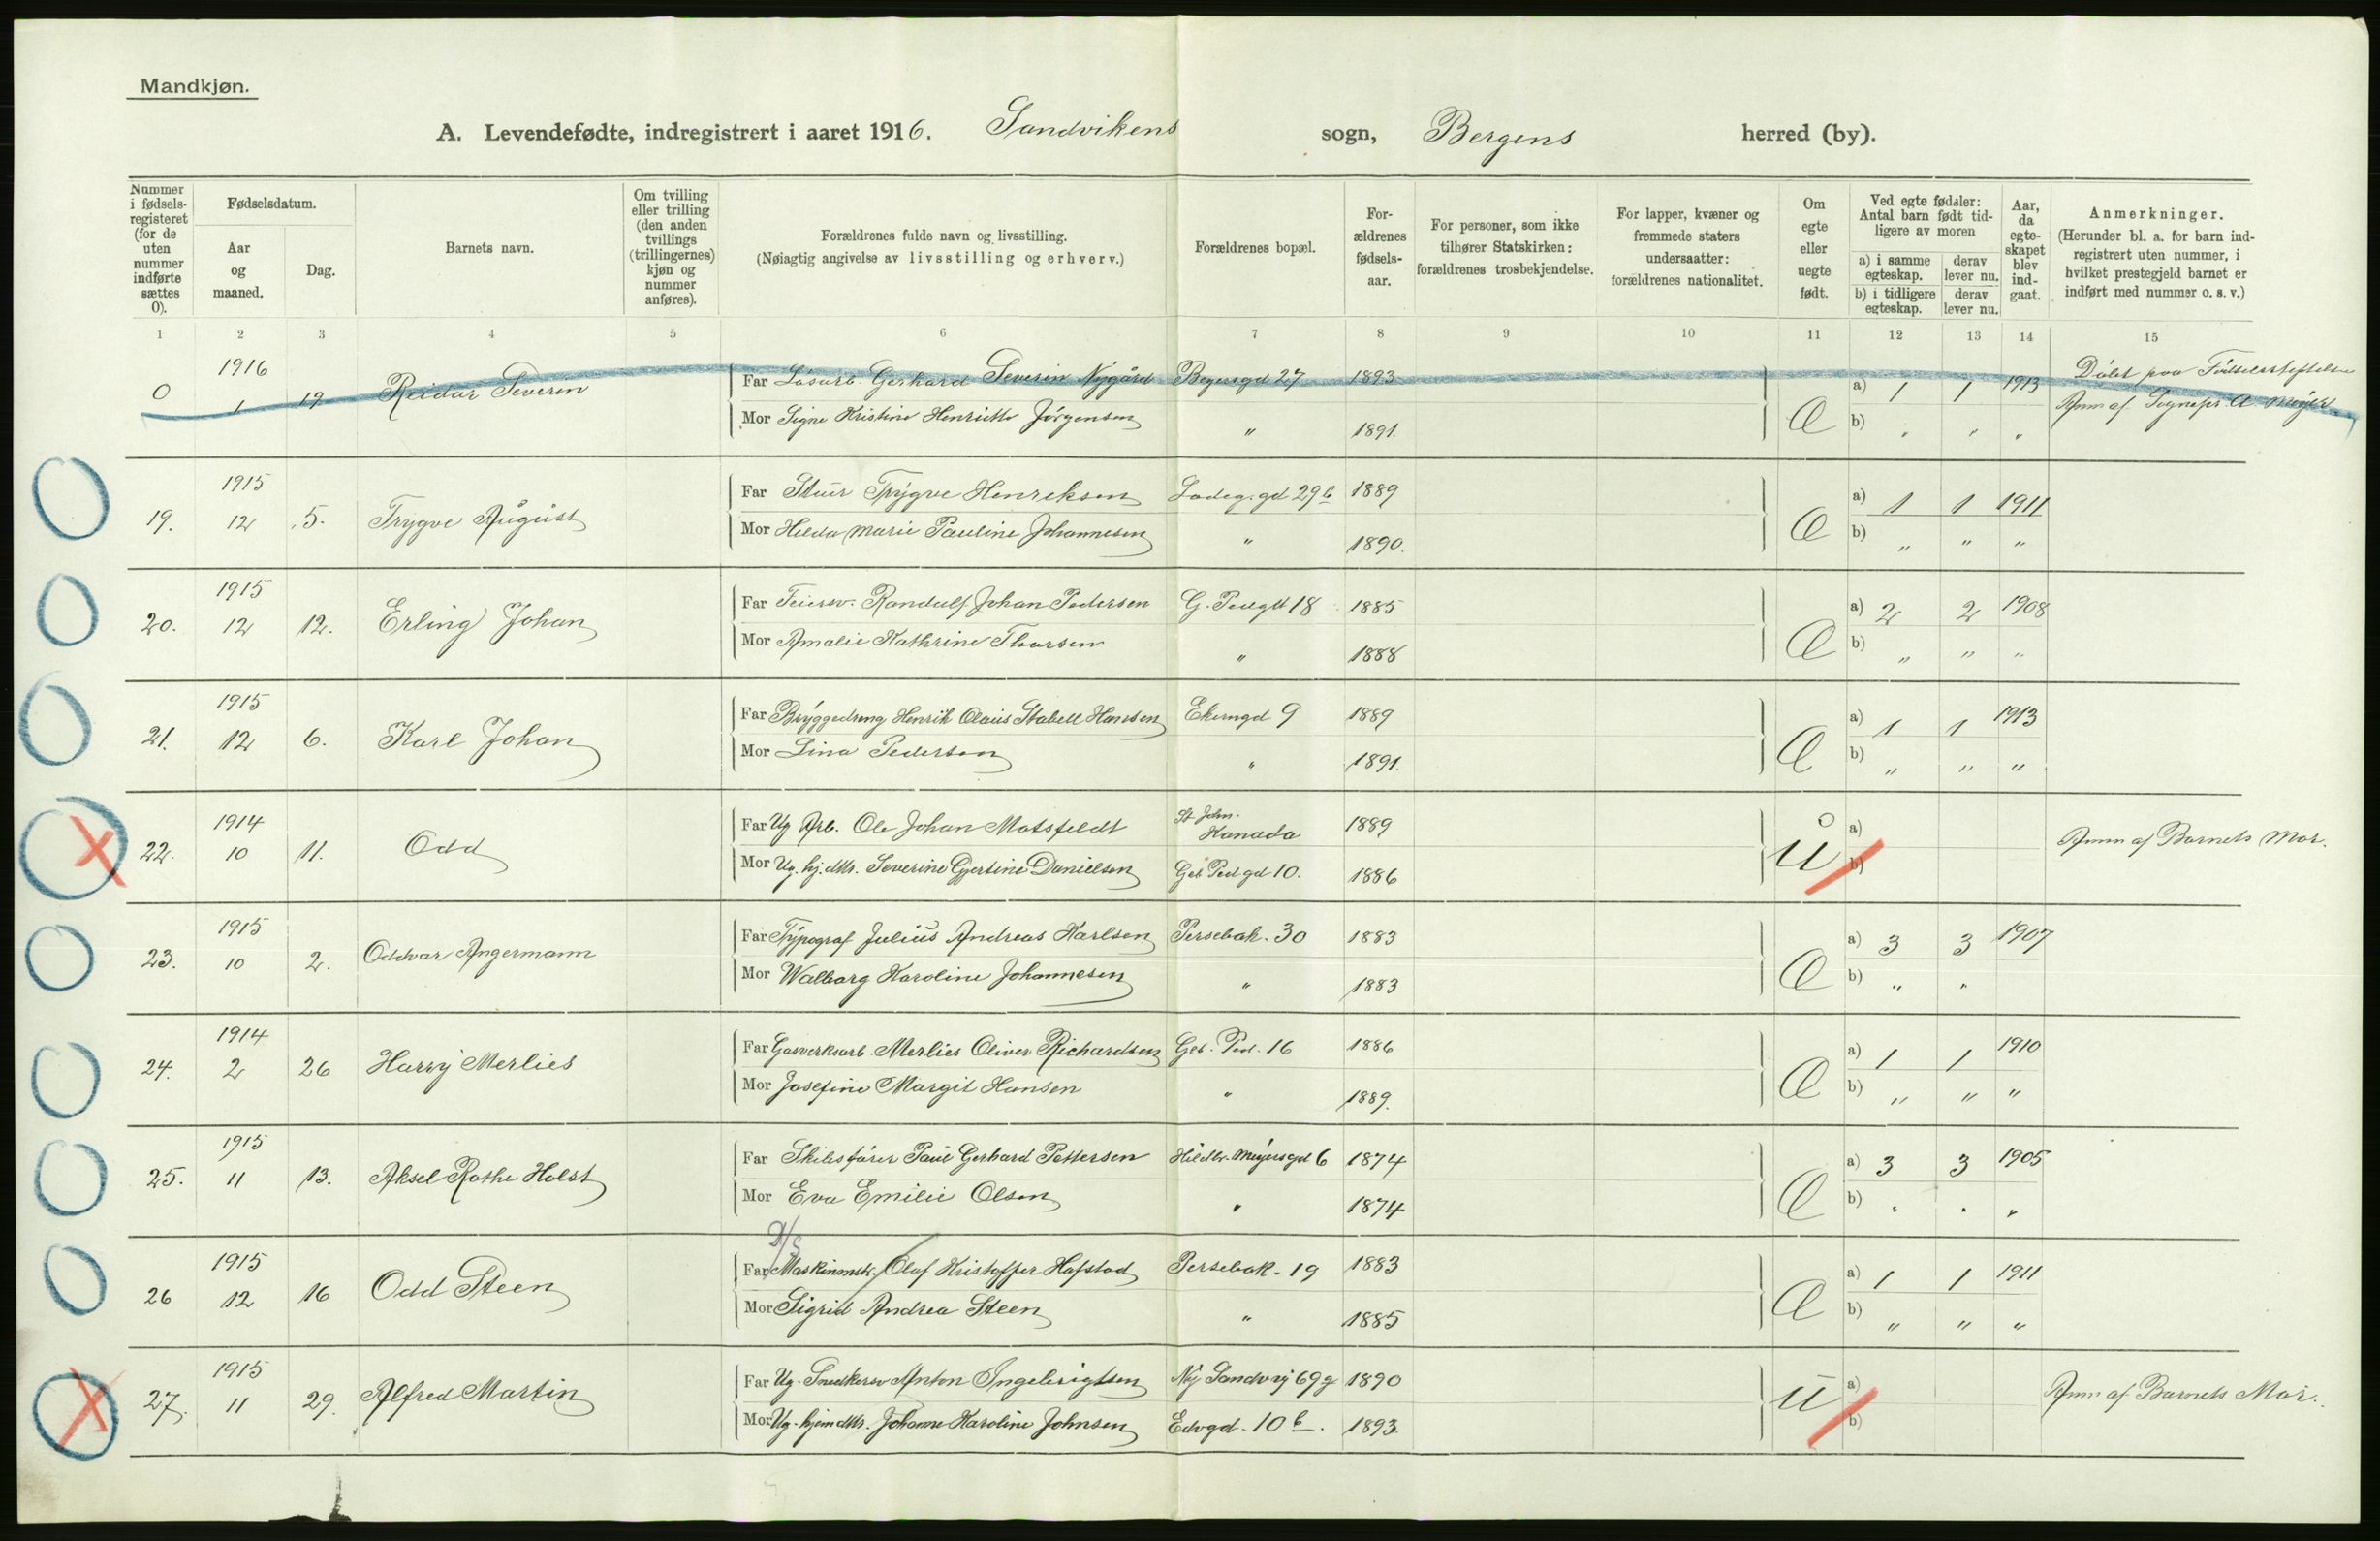 Mandkjøn.
A. Levendefødte, indregistrert i aaret 1916. Sandvikens sogn, Bergens herred (by).
Nummer i fødsels-registeret (for de uten nummer indførte sættes 0).
Fødselsdatum.
Aar og maaned.
Dag.
Barnets navn.
Om tvilling eller trilling (den anden tvillings (trillingernes) kjøn og nummer anføres).
Forældrenes fulde navn og livsstilling.
(Nøiagtig angivelse av livsstilling og erhverv.)
Forældrenes bopæl.
For-ældrenes fødsels-aar.
For personer, som ikke tilhører Statskirken: forældrenes trosbekjendelse.
For lapper, kvæner og fremmede staters undersaatter: forældrenes nationalitet.
Om egte eller uegte født.
Ved egte fødsler: Antal barn født tid-ligere av moren
a) i samme egteskap. derav lever nu.
b) i tidligere egteskap. derav lever nu.
Aar, da egte-skapet blev ind-gaat.
Anmerkninger.
(Herunder bl. a. for barn ind-registrert uten nummer, i hvilket prestegjeld barnet er indført med nummer o. s. v.)
1 2 3 4 5 6 7 8 9 10 11 12 13 14 15
0 1916 1 19 Reidar Severin
Far Løsarb. Gerhard Severin Nygård 27 1893 a) 1 1 1913 Døbt paa
Mor Signe Kristine Henriette Jörgensen " 1891. Æ b) " " " Anm af Sognepr.
19. 1915 12 5. Trygve August
Far Stuer Trygve Henriksen Ladeg. gd 29b 1889 a) 1 1 1911
Mor Hilda Marie Pauline Johannesen " 1890. Æ b) " " "
20. 1915 12 12. Erling Johan
Far Feiersv. Randulf Johan Pedersen G. Pedgd 18 1885 a) 2 2 1908
Mor Amalie Kathrine Thorsen " 1888 Æ b) " " "
21. 1915 12 6. Karl Johan
Far Bryggedreng Henrik Olaus Stabell Hansen Ekerngd 9 1889 a) 1 1 1913
Mor Lina Pedersen " 1891. Æ b) " " "
22. 1914 10 11. Odd
Far Ug Arb. Ole Johan Motsfeldt St John. Kanada 1889 a)
Mor Ug. hj. dttr. Severine Gjertine Danielsen Geb Ped gd 10. 1886 U b) Anm af Barnets Mor.
23. 1915 10 2. Oddvar Angermann
Far Typograf Julius Andreas Karlsen Persebak. 30 1883 a) 3 3 1907
Mor Walborg Karoline Johannesen " 1883 Æ b) " "
24. 1914 2 26 Harry Merlies
Far Gasverksarb. Merlies Oliver Richardsen Geb. Ped. 16 1886 a) 1 1 1910
Mor Josefine Margit Hansen " 1889. Æ b) " " "
25. 1915 11 13. Aksel Rothe Holst
Far Skibsfører Paul Gerhard Pettersen 6 1874 a) 3 3 1905
Mor Eva Emilie Olsen " 1874 Æ b) " " "
26 1915 12 16 Odd Steen
D/S
Far Maskinmstr. Olaf Kristoffer Hafstad Persebak. 19 1883 a) 1 1 1911
Mor Sigrid Andrea Steen " 1885 Æ b) " " "
27. 1915 11 29. Alfred Martin
Far Ug. Snedkersv Anton Ingebrigtsen Ny Sandvig 69 1890 a)
Mor Ug. hjemdttr. Johanne Karoline Johnsen Edvgd. 10 b. 1893. U b) Anm af Barnets Mor.